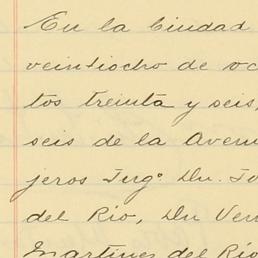 En la Ciudad
veintiocho de oc
tos treinta y seis,
seis de la Aveni
jeros Ing° Dn.
del Rio, Dn Ven
Martinez del Rio